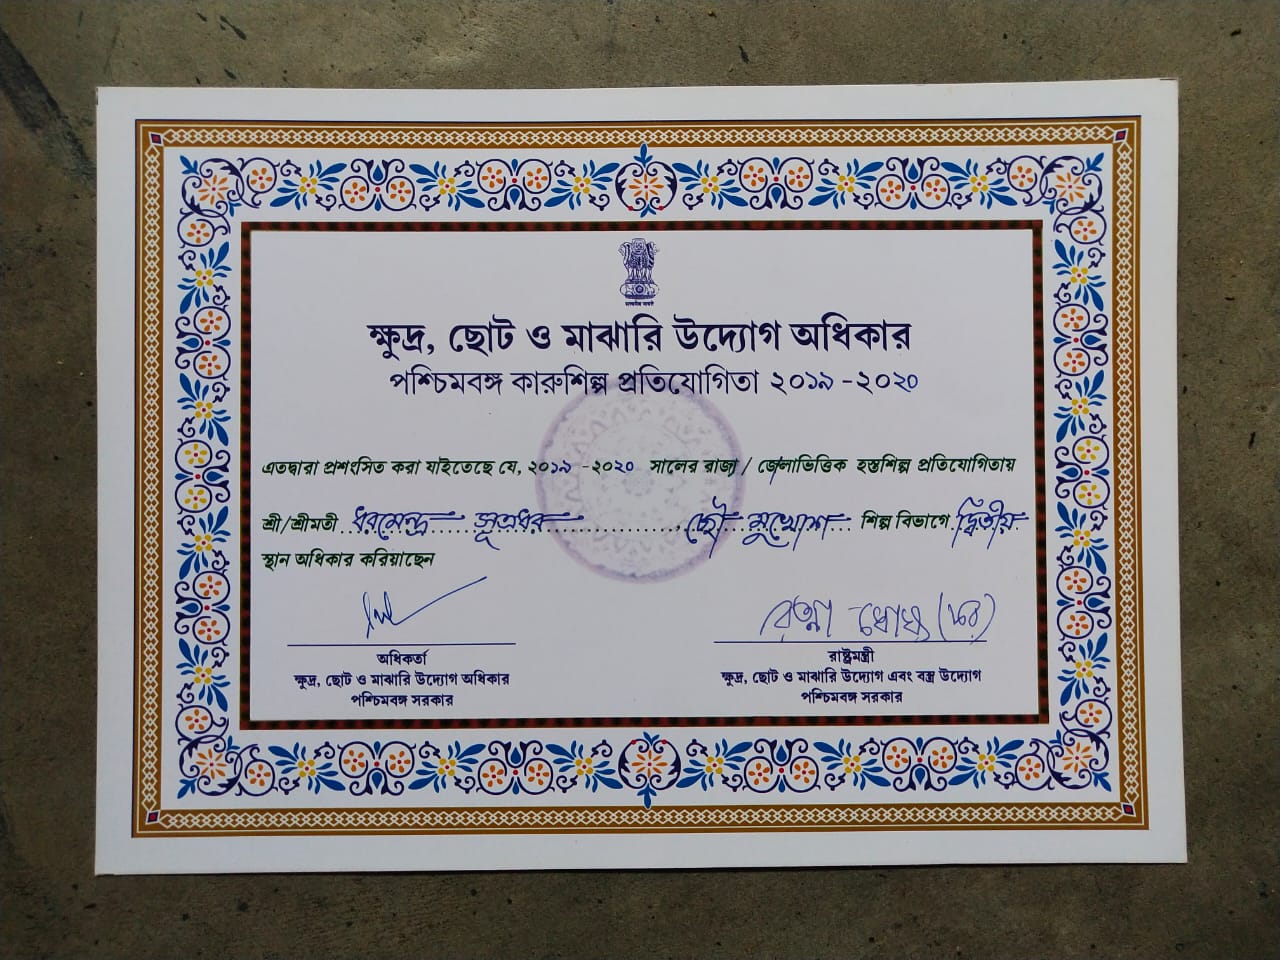 ক্ষুদ্র, ছোট ও মাঝারি উদ্যোগ অধিকার
পশ্চিমবঙ্গ কারুশিল্প প্রতিযোগিতা ২০১৯ -২০২০
এতদ্বারা প্রশংসিত করা যাইতেছে যে, ২০১৯ -২০২০ সালের রাজ্য / জেলাভিত্তিক হস্তশিল্প প্রতিযোগিতায়
শ্রী/শ্রীমতী ধরমেন্দ্র সূত্রধর ছৌ মুখোশ শিল্প বিভাগে দ্বিতীয়
স্থান অধিকার করিয়াছেন
রত্না ঘোষ (কর)
অধিকর্তা
ক্ষুদ্র, ছোট ও মাঝারি উদ্যোগ অধিকার
পশ্চিমবঙ্গ সরকার
রাষ্ট্রমন্ত্রী
ক্ষুদ্র, ছোট ও মাঝারি উদ্যোগ এবং বস্ত্র উদ্যোগ
পশ্চিমবঙ্গ সরকার